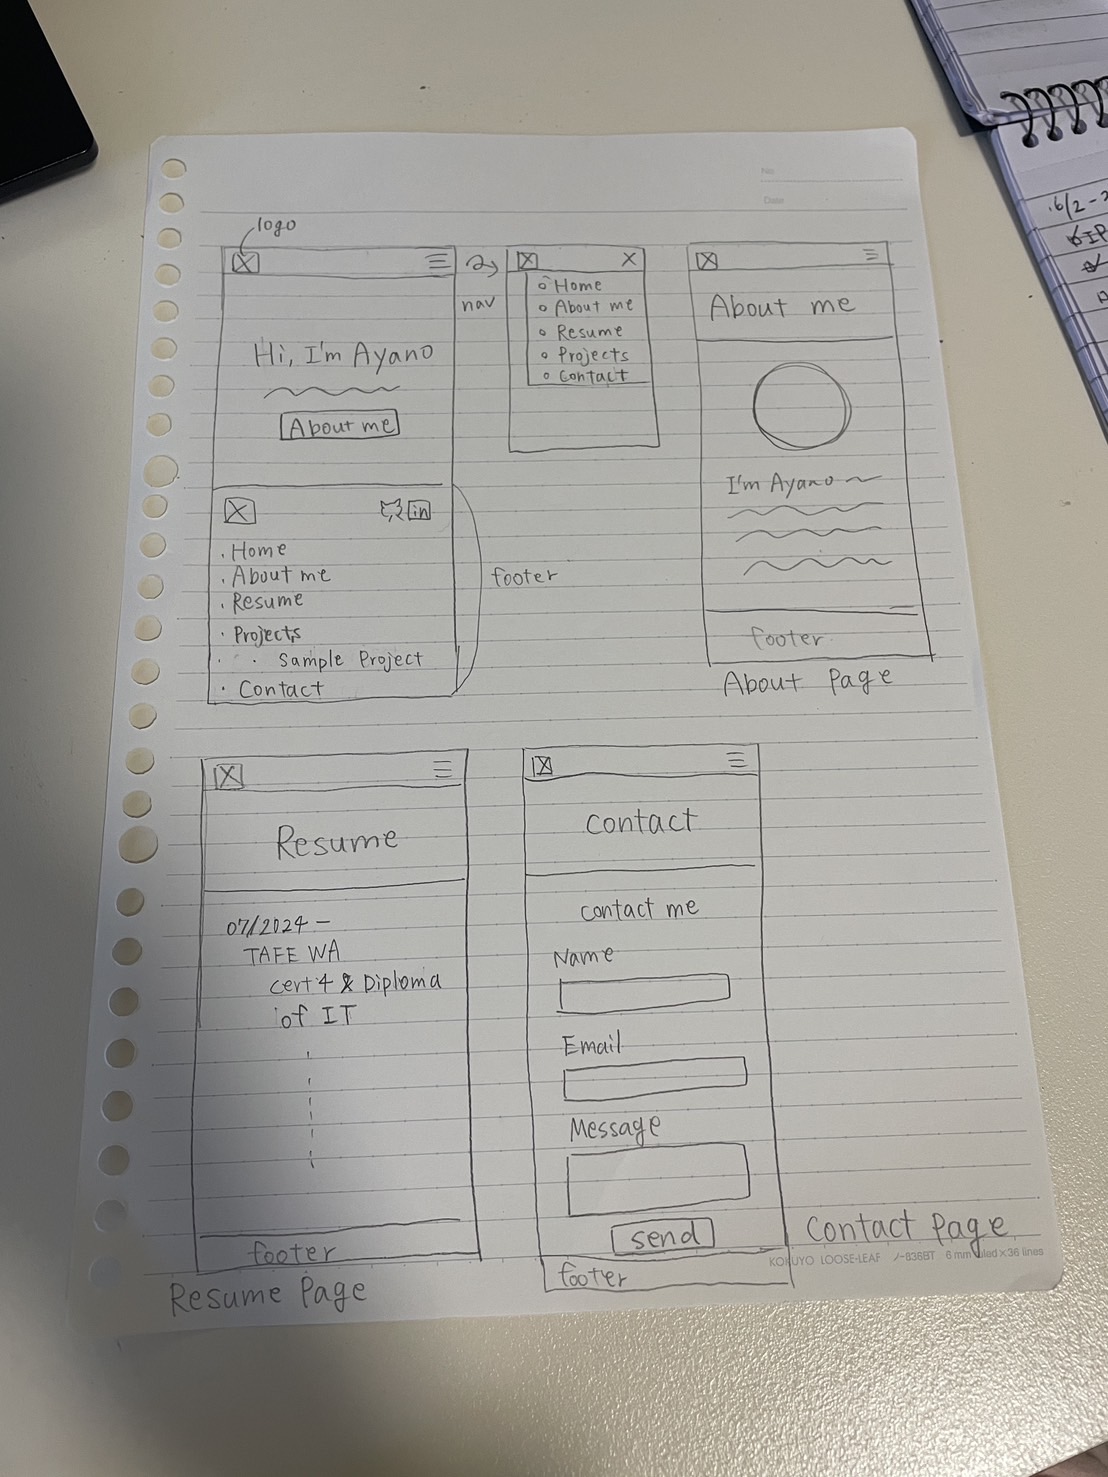 No.
Date
logo
Hi, I'm Ayano
About me
in
. Home
. About me
. Resume
. Projects
. . Sample Project
. Contact
footer
nav
X
Home
About me
Resume
Projects
Contact
About me
I'm Ayano
footer
About Page
Resume
07/2024 -
TAFE WA
cert 4 & Diploma
of IT
footer
Resume Page
contact
contact me
Name
Email
Message
send
footer
Contact Page
KOKUYO LOOSE-LEAF ノ-836BT 6 mm ruled×36 lines
.6/2 -